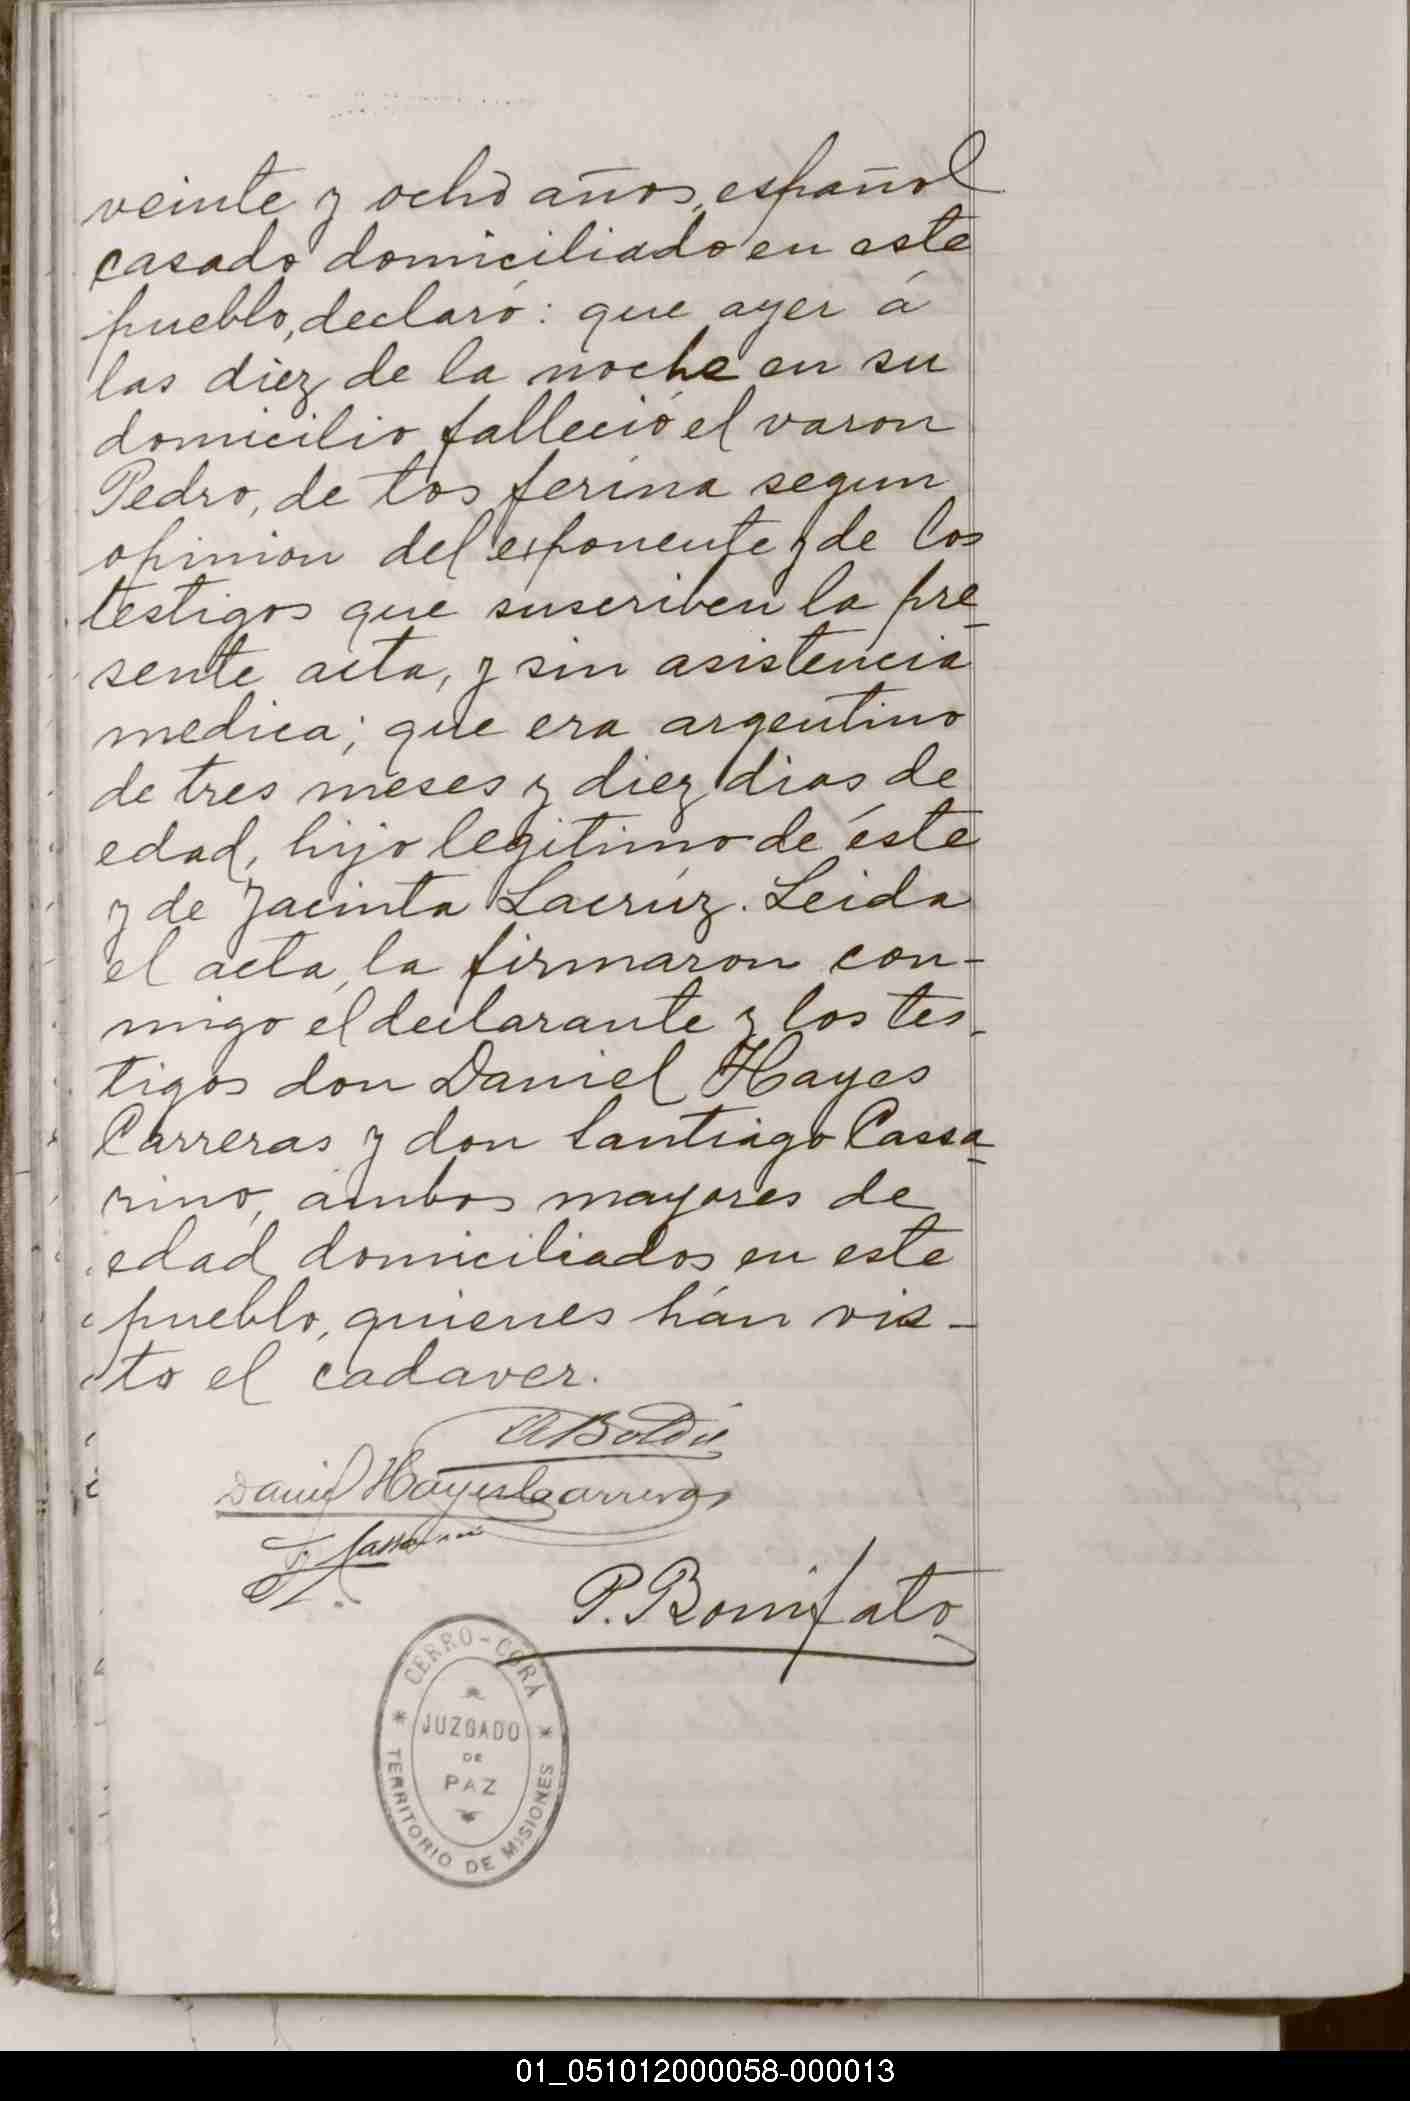 veinte y ocho años, español
casado domiciliado en este
pueblo, declaró: que ayer á
las diez de la noche en su
domicilio falleció el varon
Pedro, de tos ferina segun
opinion del exponente y de los
testigos que suscriben la pre-
sente acta, y sin asistencia
medica; que era argentino
de tres meses y diez dias de
edad, hijo legitimo de éste
y de Jacinta Lacrúz. Leida
el acta, la firmaron con-
migo el declarante y los tes-
tigos don Daniel Hayes
Carreras y don Santiago Cassa-
rino, ambos mayores de
edad domiciliados en este
pueblo, quienes hán vis-
to el cadaver.
Daniel Hayes Carreras
P. Bonifato
CERRO-CORÁ
JUZGADO
DE
PAZ
TERRITORIO DE MISIONES
01_051012000058-000013